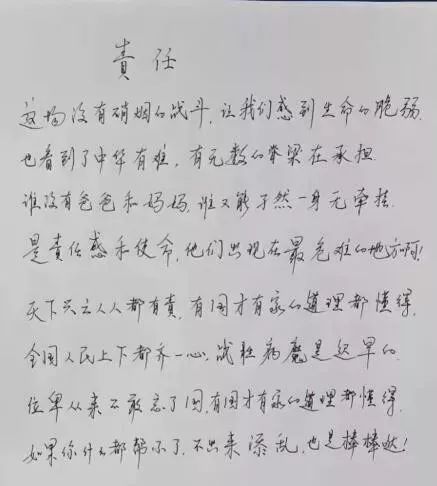 責任
这场没有硝烟的战斗,让我们感到生命的脆弱.
也看到了中华有难,有无数的脊梁在承担.
谁没有爸爸和妈妈,谁又能孑然一身无牵挂.
是责任感和使命,他们出现在最危难的地方啊!
天下兴亡人人都有責,有国才有家的道理都懂得.
全国人民上下都齐一心,战胜病魔是迟早的.
位卑从来不敢忘了国,有国才有家的道理都懂得.
如果你什么都帮不了,不出来添乱,也是棒棒哒!